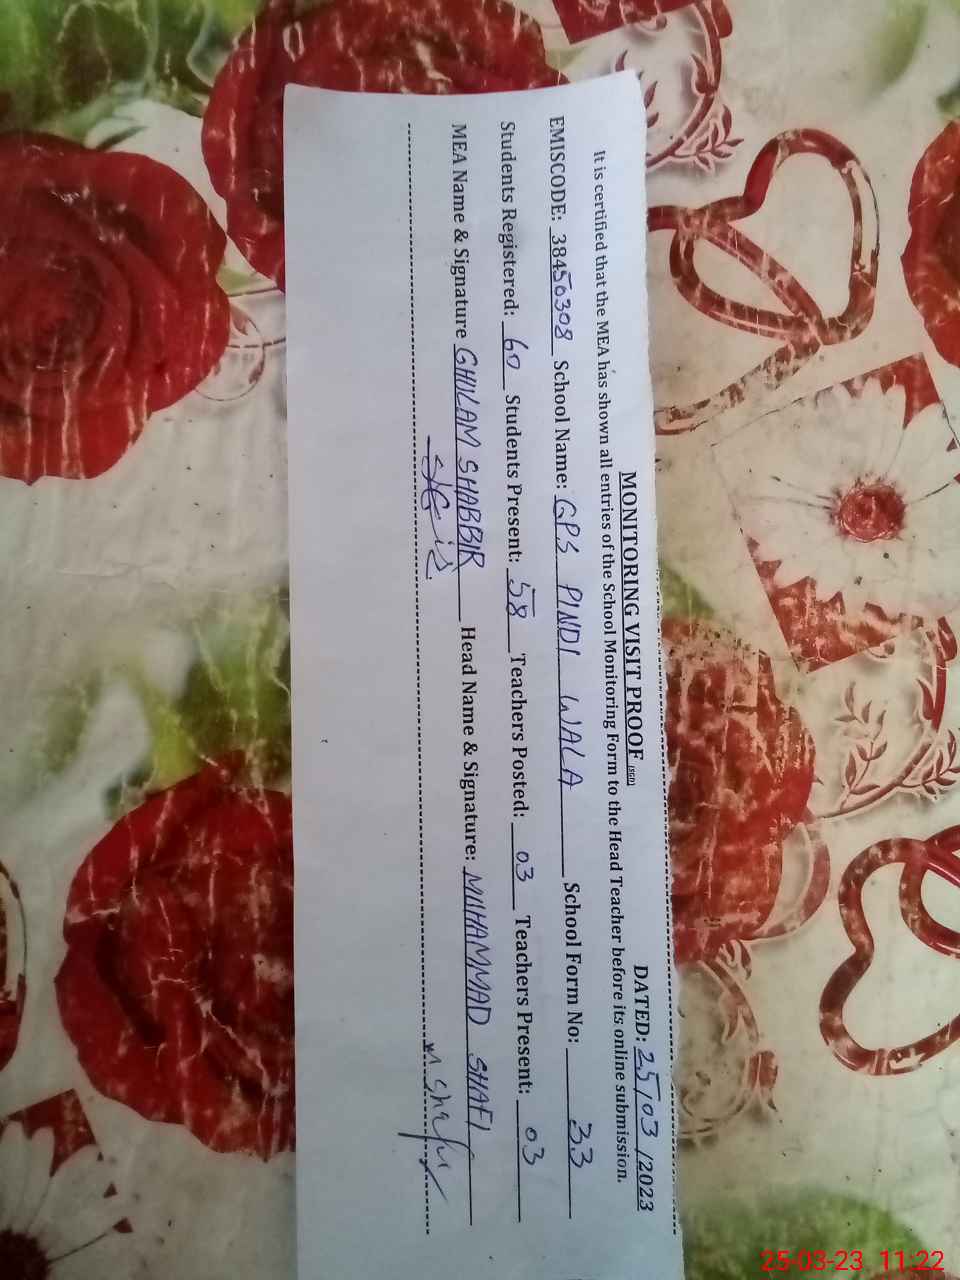 MONITORING VISIT PROOF (SGD) DATED: 25/03/2023
It is certified that the MEA has shown all entries of the School Monitoring Form to the Head Teacher before its online submission.
EMISCODE: 38450308 School Name: GPS PINDI WALA School Form No: 33
Students Registered: 60 Students Present: 58 Teachers Posted: 03 Teachers Present: 03
MEA Name & Signature GHULAM SHABBIR Head Name & Signature: MUHAMMAD SHAFI
M Shafi
25-03-23 11:22